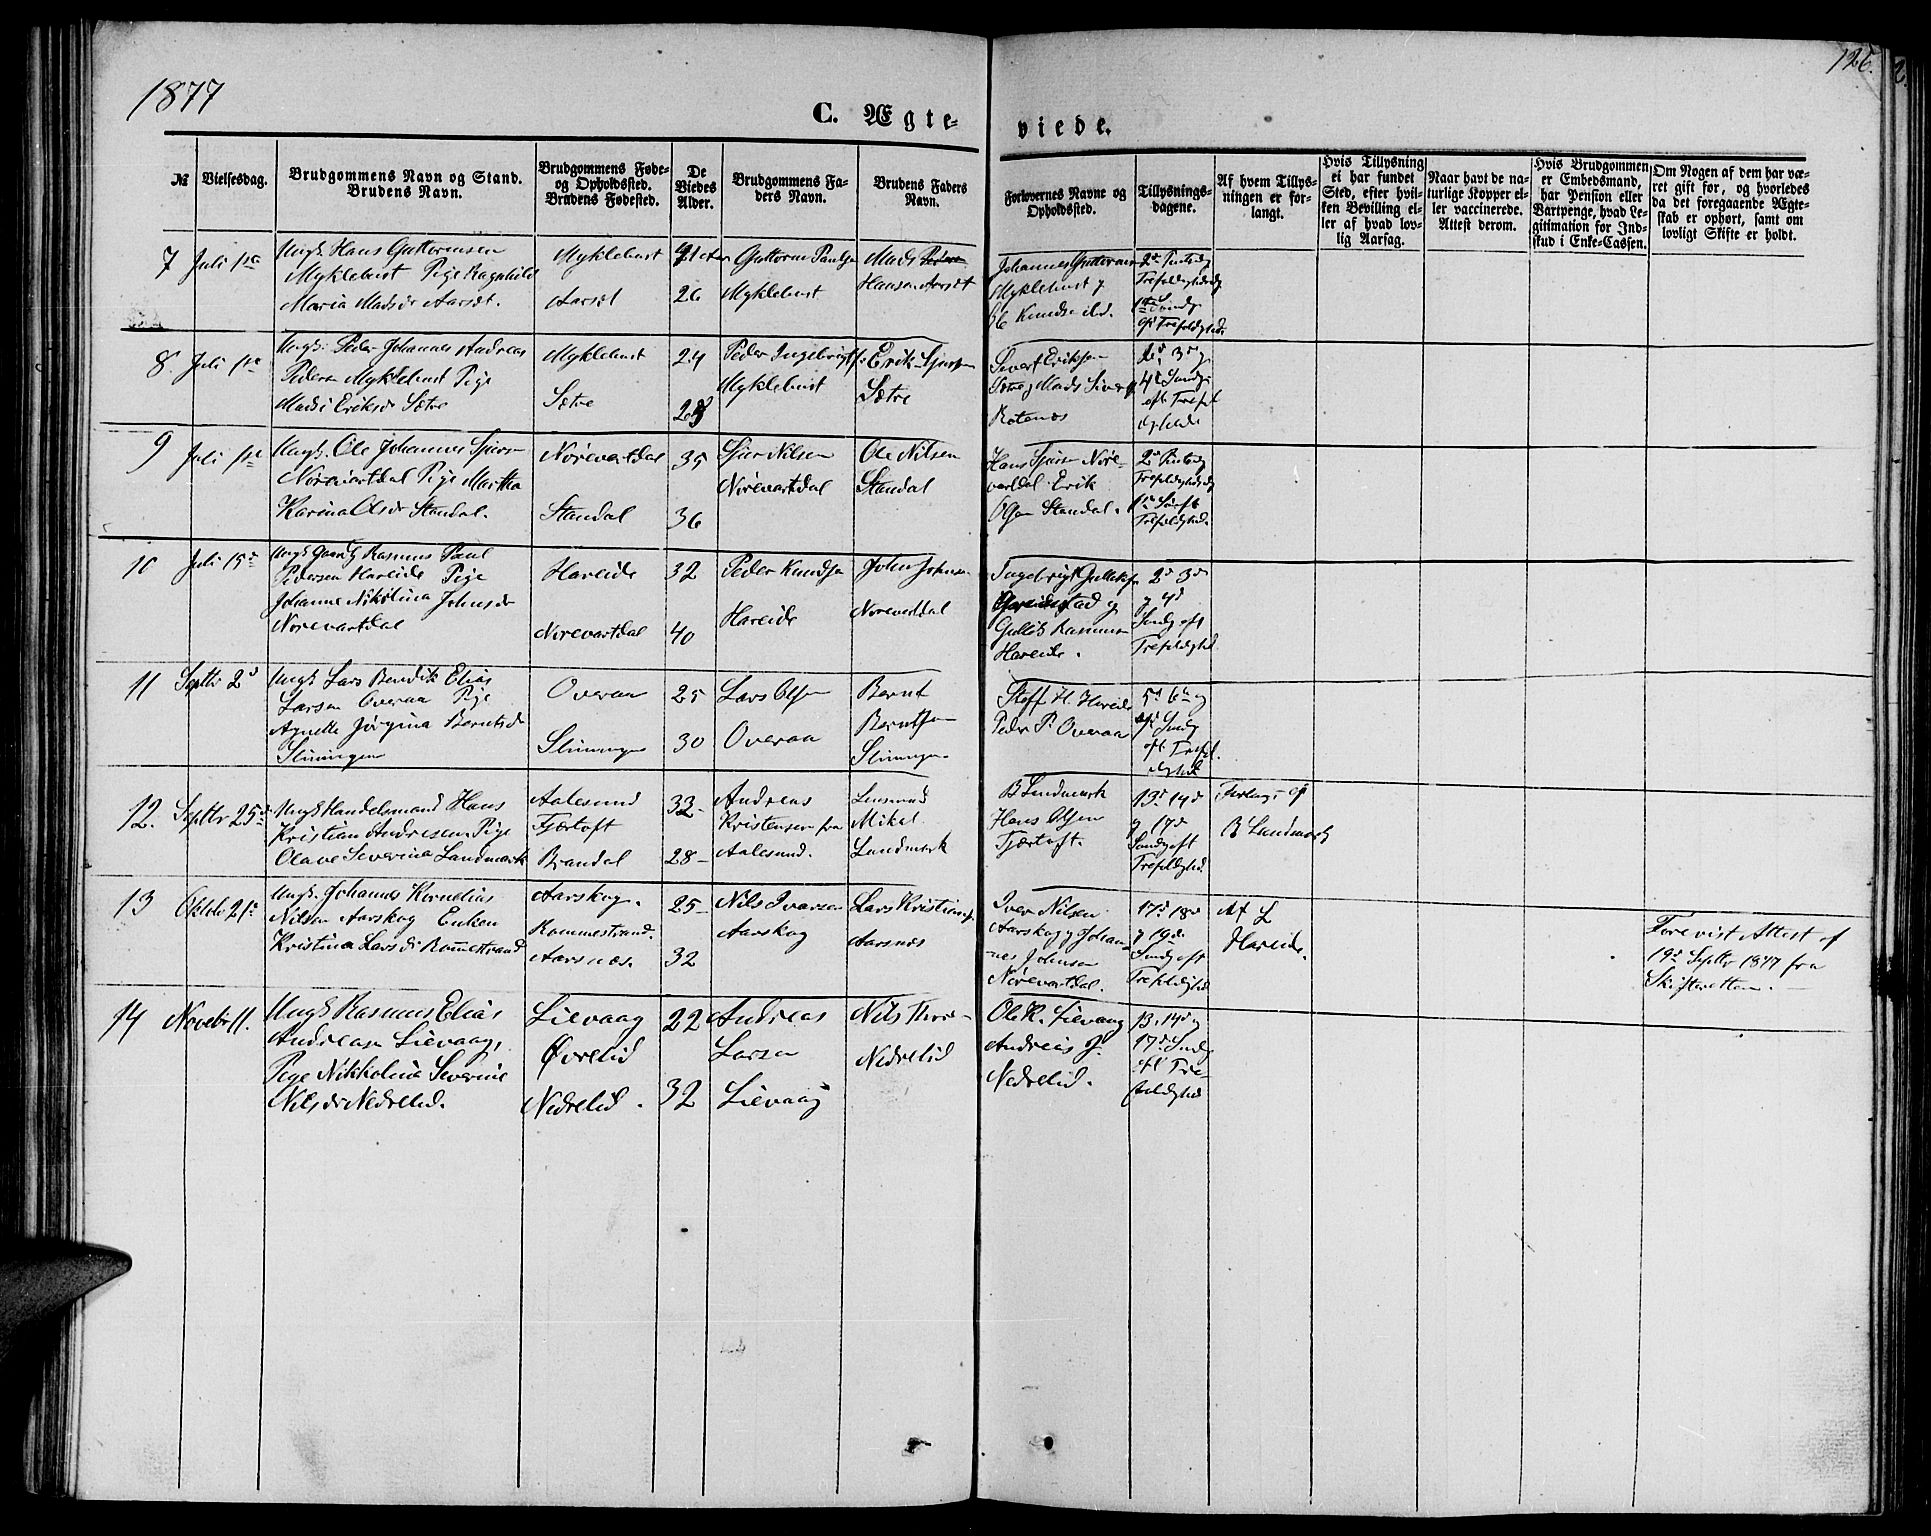 1877
126.
C. Ægte-
viede.
№
Vielsesdag.
Brudgommens Navn og Stand.
Brudens Navn.
Brudgommens Føde-
og Opholdsted.
Brudens Fødested.
De
Viedes
Alder.
Brudgommens Fa-
ders Navn.
Brudens Faders
Navn.
Forlovernes Navne og
Opholdsted.
Tillysnings-
dagene.
Af hvem Tillys-
ningen er for-
langt.
Hvis Tillysning
ei har fundet
Sted, efter hvil-
ken Bevilling el-
ler af hvad lov-
lig Aarsag.
Naar havt de na-
turlige Kopper el-
ler vaccinerede.
Attest derom.
Hvis Brudgommen
er Embedsmand,
har Pension eller
Vartpenge, hvad Le-
gitimation for Ind-
skud i Enke-Cassen.
Om Nogen af dem har væ-
ret gift før, og hvorledes
da det foregaaende Ægte-
skab er ophørt, samt om
lovligt Skifte er holdt.
7
Juli 1ste
Ungk. Hans Guttormsen
Myklebust Pige Ragnhild
Maria Madsdr Aarset.
Myklebust
Aarset
26
Guttorm Paulsen
Myklebust
Mads
Hansen Aarset
Johannes Guttormsen
Myklebust &
Ole Knudsen ibd.
2d Pintsdg
Trefoldighedsdg
1ste Sundg
eft Trefoldighed.
8.
Juli 1ste
Ungk. Peder Johannes Andreas
Pedersen Myklebust Pige
Madsi Eriksdr Sætre
Myklebust
Sætre
24
Peder Ingebrigts.
Myklebust
Erik Sjursen
Sætre
Sivert Eriksen
Sætre & Mads Siverts.
Rotenæs
2d, 3d &
4d Sundg
eft. Trefol-
dighed
9
Juli 1ste
Ungk. Ole Johannes Sjursen
Nørevartdal Pige Martha
Karina Olsdr Standal.
Nørevartdal
Standal
35
36
Sjur Nilsen
Nørevartdal
Ole Nilsen
Standal
Hans Sjursen Nøre-
vartdal. Erik
Olsen Standal.
2d Pintsdg
Trefoldighedsdg
1ste S. eft
Trefoldighed.
10
Juli 15de
Ungk Rasmus Paul
Pedersen Hareide Pige
Johanne Nikolina Johnsdr
Nørevartdal
Hareide
Nørevartdal
32
40
Peder Knudsen
Hareide
John Johnsen
Nørevartdal
Ingebrigt Gulliksen
Hareidstad &
Gullik Rasmussen
Hareide.
2d 3d
& 4d
Sundg eft
Trefoldighed.
11
Septbr 2d
Ungk. Lars Bendik Elias
Larsen Overaa Pige
Agnette Jørgina Berntsdr
Sliningen
Overaa
Sliningen
25
30
Lars Olsen
Overaa
Bernt
Berntsen
Sliningen
Steff. H. Hareide
Peder P. Overaa
5d 6te &
Sundg
eft. Trefol-
dighed
12.
Septbr 25de
Ungk Handelsmand Hans
Kristian Andresen. Pige
Olave Severina Landmark
Aalesund
Fjærtoft
Brandal
33
28
Andreas
Kristensen fra
Aalesund.
Lensmand
Mikal
Landmark
B Landmark
Hans Olsen
Fjærtoft.
13d 14d
& 17d
Sundg eft
Trefoldighed
Forlangt af
B Landmark
13
Oktbr 21de
Ungk. Johannes Kornelius
Nilsen Aarskog Enken
Kristina Larsdr Rommestrand
Aarskog.
Rommestrand.
Aarsnæs.
25
32
Nils Ivarsen
Aarskog
Lars Kristians.
Aarsnæs
Iver Nilsen
Aarskog & Johan-
nes Johnsen
Nørevartdal.
17d 18d
& 19de
Sundg eft
Trefoldighed
Af L
Hareide.
Forevist Attest af
19d Septbr 1877 fra
Skifteretten.
14
Novebr 11.
Ungk Rasmus Elias
Andreasen Lievaag,
Pige Nikkoline Severine
Nilsdr Nedrelid.
Lievaag
Øvrelid
Nedrelid.
22
32
Andreas
Larsen
Lievaag
Nils Thore-
Nedrelid
Ole K. Lievaag
Andreas J.
Nedrelid.
13. 14d &
17d Sundg
eft Tre-
foldighed